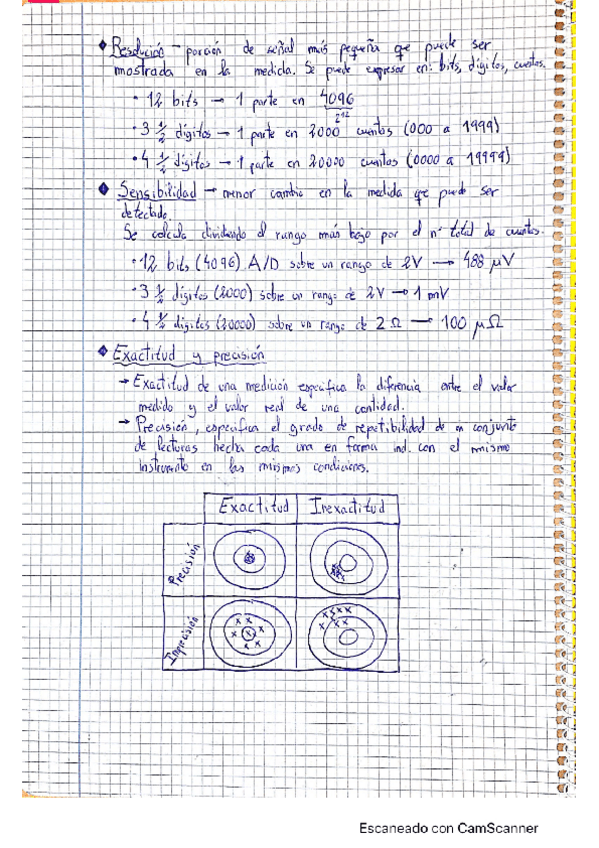 Resolución – porción de señal más pequeña que puede ser
mostrada en la medida. Se puede expresar en: bits, dígitos, cuentas.
· 12 bits → 1 parte en 4096
2^12
· 3 1/2 dígitos → 1 parte en 2000 cuentas (000 a 1999)
· 4 1/2 dígitos → 1 parte en 20000 cuentas (0000 a 19999)
Sensibilidad → menor cambio en la medida que puede ser
detectado.
Se calcula dividiendo el rango más bajo por el nº total de cuentas.
· 12 bits (4096) A/D sobre un rango de 2V → 488 μV
· 3 1/2 dígitos (2000) sobre un rango de 2V → 1 mV
· 4 1/2 dígitos (20000) sobre un rango de 2 Ω → 100 μΩ
Exactitud y precisión
→ Exactitud de una medición especifica la diferencia entre el valor
medido y el valor real de una cantidad.
→ Precisión, especifica el grado de repetibilidad de un conjunto
de lecturas hecha cada una en forma ind. con el mismo
instrumento en las mismas condiciones.
Exactitud Inexactitud
Precisión
Imprecisión
Escaneado con CamScanner